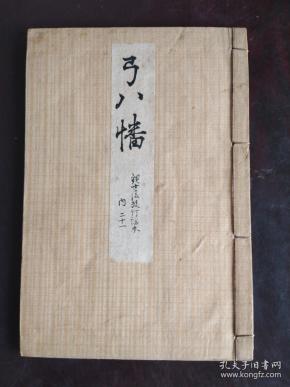 弓八幡
観世流改訂謡本
内 二十一
孔夫子旧书网